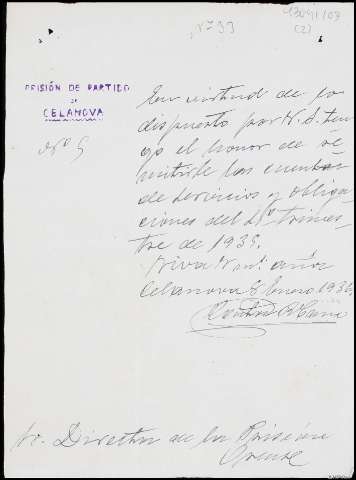 43041/03
Nº 33
(2)
PRISIÓN DE PARTIDO
DE
CELANOVA
Nº 5
En virtud de lo
dispuesto por V. S. ten-
go el honor de re-
mitirle las cuentas
de servicios y obliga-
ciones del 4º trimes-
tre de 1935.
Viva V. m. años
Celanova 8 Enero 1936
Sr. Director de la Prisión
Orense